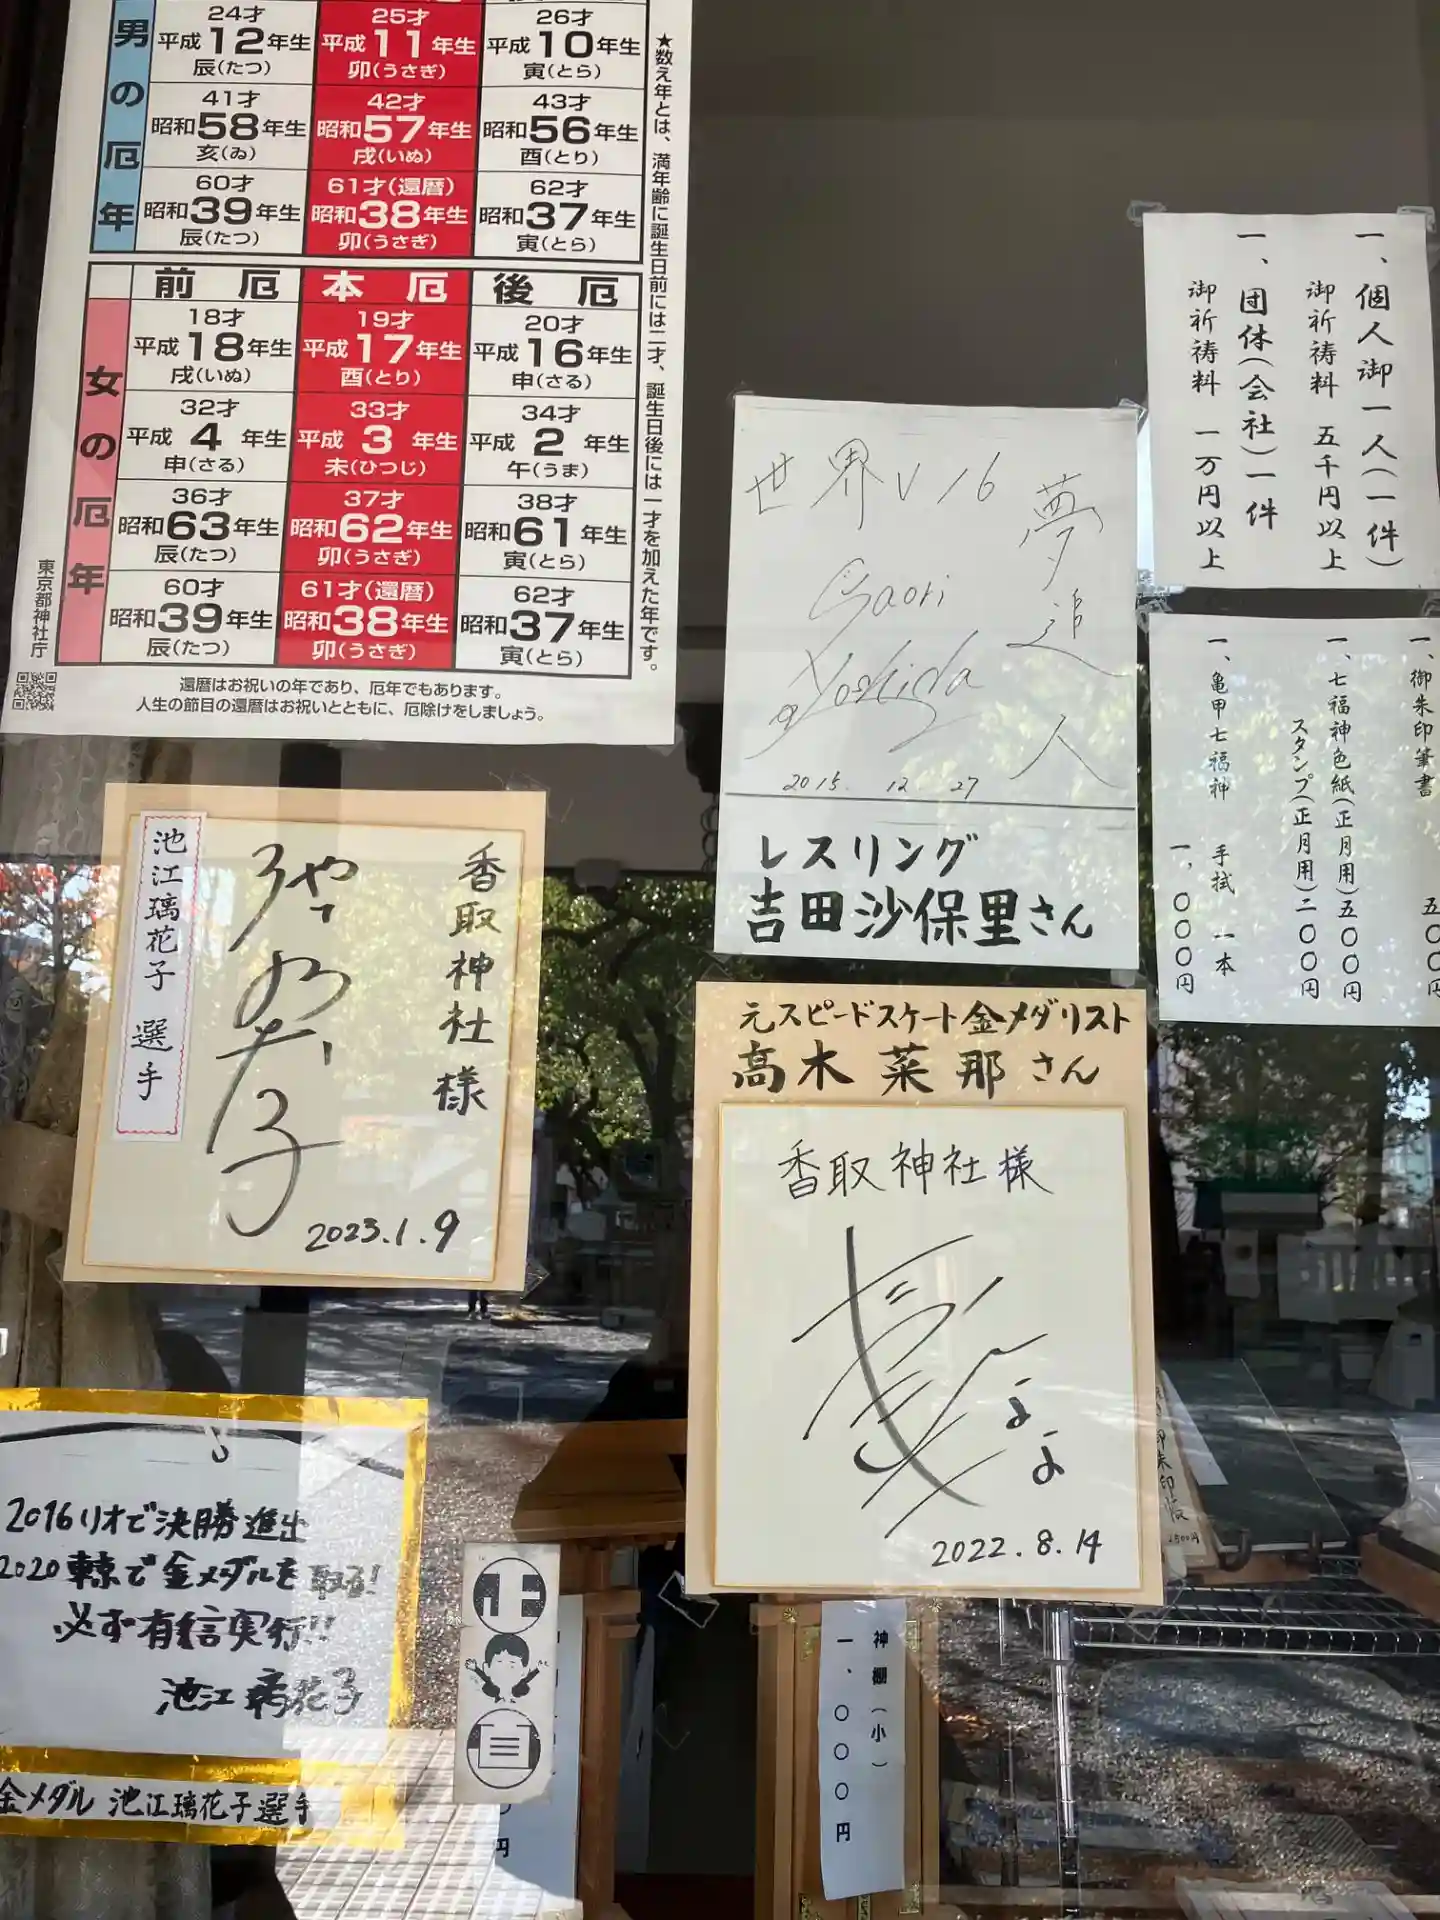 男の厄年
24才
平成12年生
辰(たつ)
25才
平成11年生
卯(うさぎ)
26才
平成10年生
寅(とら)
41才
昭和58年生
亥(ゐ)
42才
昭和57年生
戌(いぬ)
43才
昭和56年生
酉(とり)
60才
昭和39年生
辰(たつ)
61才(還暦)
昭和38年生
卯(うさぎ)
62才
昭和37年生
寅(とら)
女の厄年
前厄
本厄
後厄
18才
平成18年生
戌(いぬ)
19才
平成17年生
酉(とり)
20才
平成16年生
申(さる)
32才
平成4年生
申(さる)
33才
平成3年生
未(ひつじ)
34才
平成2年生
午(うま)
36才
昭和63年生
辰(たつ)
37才
昭和62年生
卯(うさぎ)
38才
昭和61年生
寅(とら)
60才
昭和39年生
辰(たつ)
61才(還暦)
昭和38年生
卯(うさぎ)
62才
昭和37年生
寅(とら)
★数え年とは、満年齢に誕生日前には二才、誕生日後には一才を加えた年です。
東京都神社庁
還暦はお祝いの年であり、厄年でもあります。
人生の節目の還暦はお祝いとともに、厄除けをしましょう。
一、個人御一人(一件)
御祈祷料 五千円以上
一、団体(会社)一件
御祈祷料 一万円以上
一、御朱印筆書
五〇〇円
一、七福神色紙(正月用)五〇〇円
スタンプ(正月用)二〇〇円
一、亀甲七福神 手拭 一本
一、〇〇〇円
世界V16
夢追人
Saori
Yoshida
2015. 12. 27
レスリング
吉田沙保里さん
香取神社様
池江璃花子 選手
2023.1.9
元スピードスケート金メダリスト
高木菜那さん
香取神社様
なな
2022.8.14
2016リオで決勝進出
2020東京で金メダルを取る!
必ず有言実行!!
池江璃花子
金メダル 池江璃花子選手
神棚(小)
一、〇〇〇円
円
御朱印帳